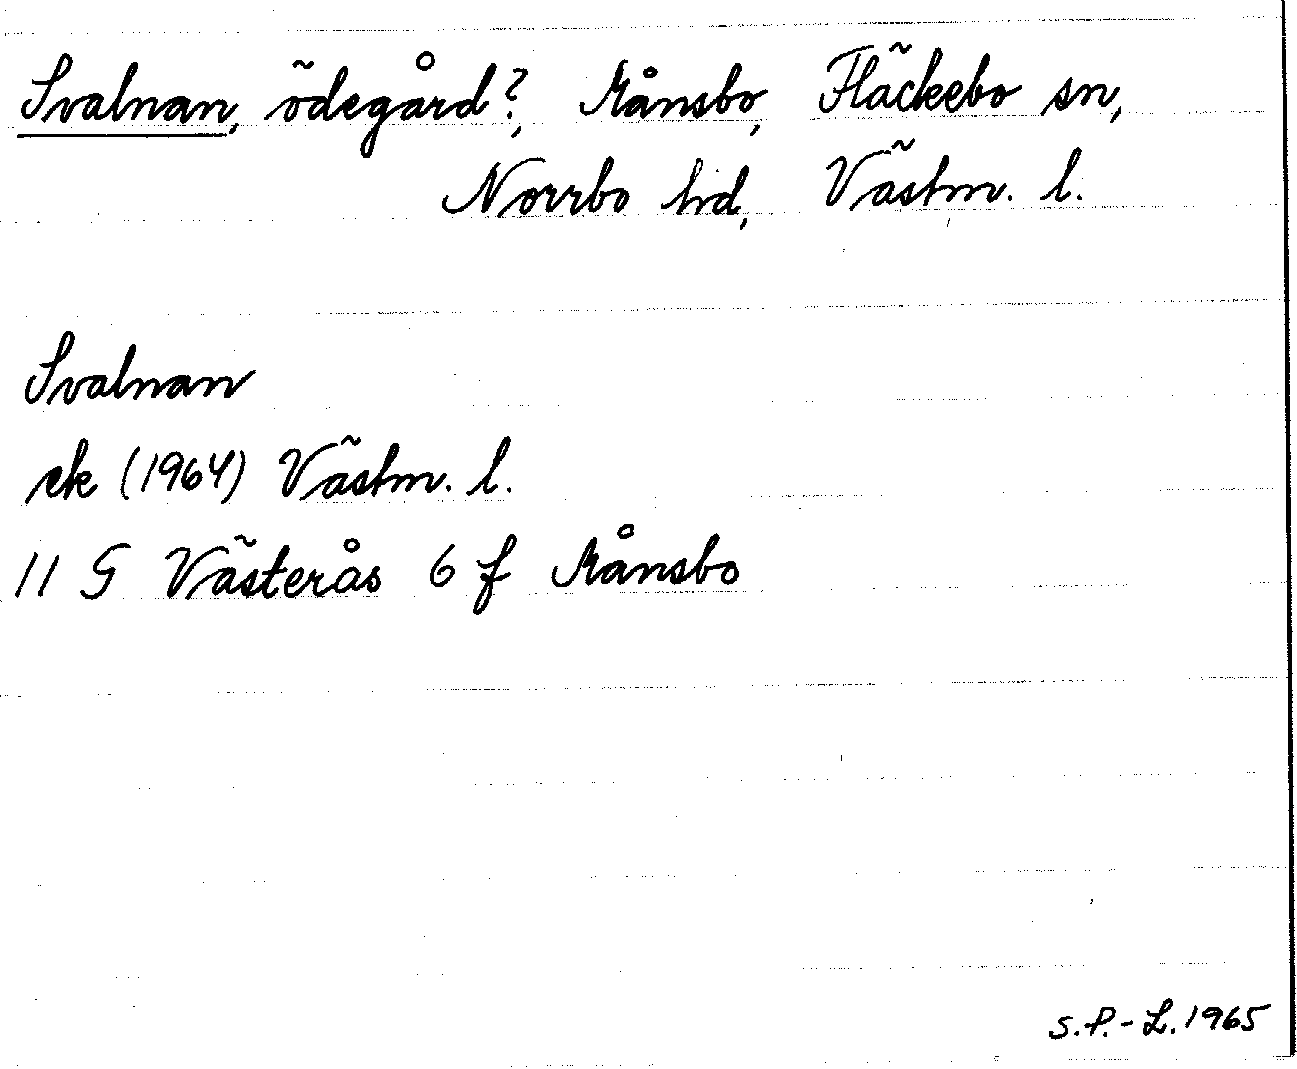 Svalnan, ödegård?, Månsbo, Fläckebo sn,
Norrbo hd, Västm. l.
Svalnan
ek (1964) Västm. l.
11 G Västerås 6 f Månsbo
S.P.-L. 1965